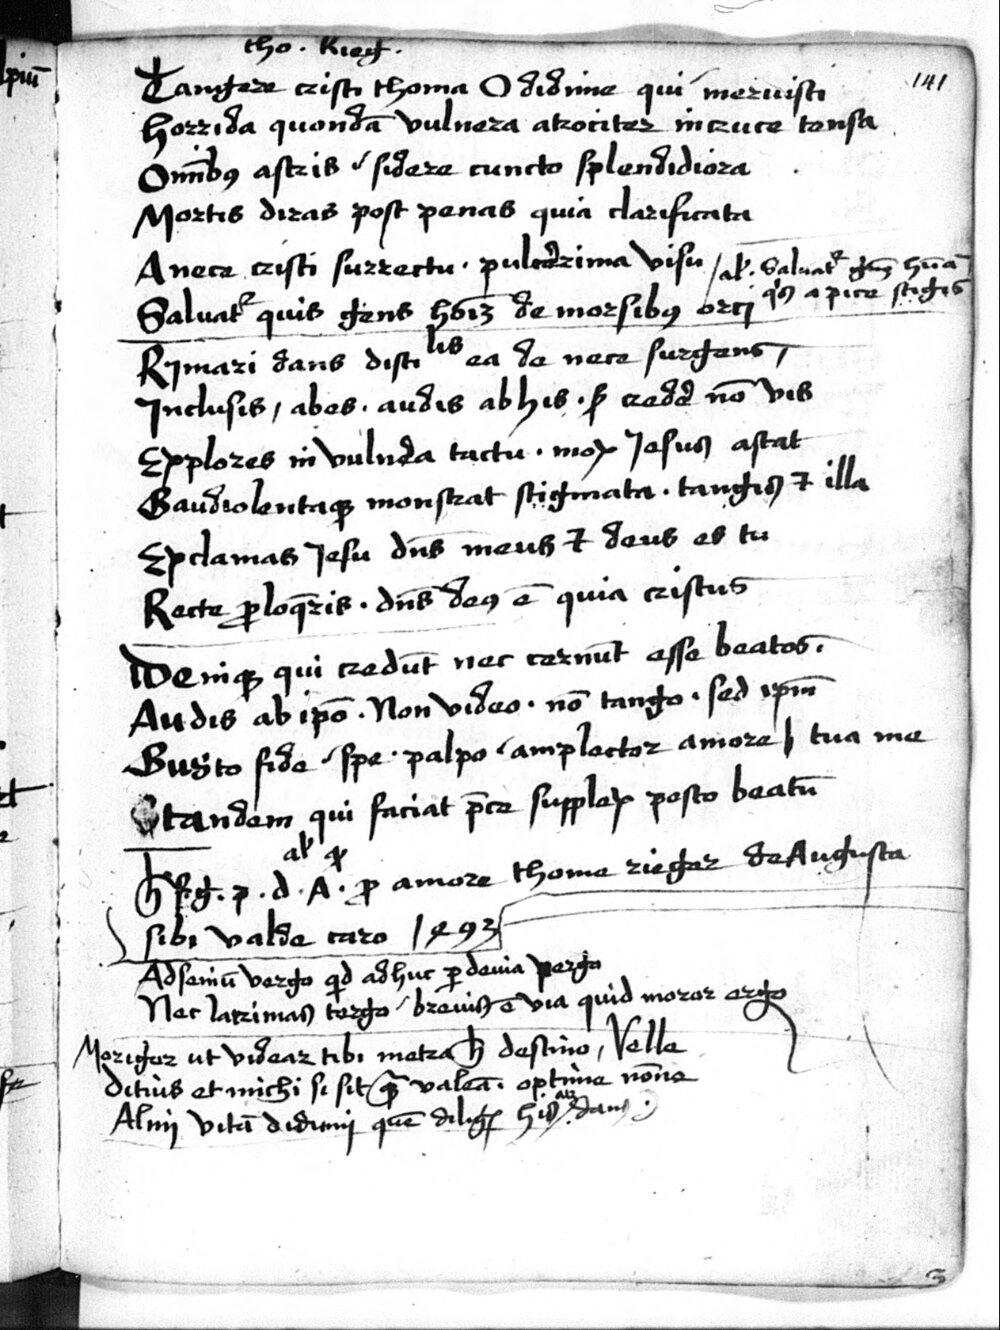 tho . Rieg .
141
Tangere cristi thoma O didime qui meruisti
Horrida quondā vulnera atrociter in cruce tensa
Omībꝰ astris / sidere cuncto splendidiora
Mortis diras post penas quia clarificata
A nece cristi surrectu . pulcerrima visu
Saluatʳ quis gens hoīꝫ de morsibꝰ orcj
al'. Saluatʳ hūa
a pice stigis
Rymari dans disti lis ea de nece surgens /
Inclusis / abes . audis ab his . s; crede nō vis
Explores in vulnera tactu . mox Jesus astat
Gaudiolentaqꝫ monstrat stigmata . tangis ⁊ illa
Exclamas Jesu dn̄s meus ⁊ deus es tu
Recte ꝓloqris . dn̄s deꝰ ē quia cristus
Deniqꝫ qui credūt nec cernūt esse beatos .
Audis ab ipō . Non video . nō tango . sed ipm̄
Gusto fide / spe . palpo / amplector amore / tua me
tandem qui faciat p̄ce supplex posto beatū
al'
p . d . A . ꝓ amore thome rieger de Augusta
sibi valde caro 1493
Ad seniū vergo qd adhuc ꝑ deuia pergo
Nec lacrimas tergo / breuis ē via quid moror ergo
Moriger ut videar tibi metra h destino / Velle
Ditius et michi si sit valeā . optime nōne
Almj vitā didimj quē his dans